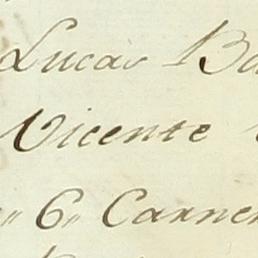 Lucas Ba
Vicente
" 6" Carner